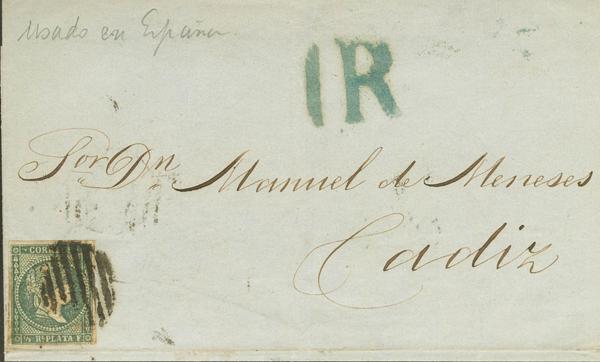 Usado en España.
1R
Sor Dn Manuel de Meneses
Cadiz
CORRE
½ Rl. PLATA F.